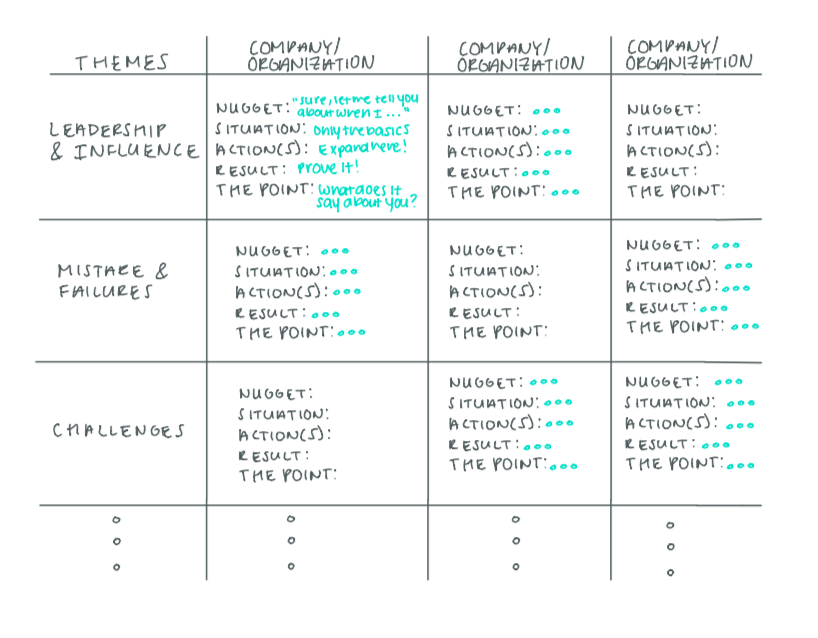 THEMES
COMPANY/
ORGANIZATION
COMPANY/
ORGANIZATION
COMPANY/
ORGANIZATION
LEADERSHIP
& INFLUENCE
NUGGET: "sure, let me tell you
about when I ..."
SITUATION: only the basics
ACTION(S): Expand here!
RESULT: Prove it!
THE POINT: What does it
say about you?
NUGGET: ooo
SITUATION: ooo
ACTION(S): ooo
RESULT: ooo
THE POINT: ooo
NUGGET:
SITUATION:
ACTION(S):
RESULT:
THE POINT:
MISTAKE &
FAILURES
NUGGET: ooo
SITUATION: ooo
ACTION(S): ooo
RESULT: ooo
THE POINT: ooo
NUGGET:
SITUATION:
ACTION(S):
RESULT:
THE POINT:
NUGGET: ooo
SITUATION: ooo
ACTION(S): ooo
RESULT: ooo
THE POINT: ooo
CHALLENGES
NUGGET:
SITUATION:
ACTION(S):
RESULT:
THE POINT:
NUGGET: ooo
SITUATION: ooo
ACTION(S): ooo
RESULT: ooo
THE POINT: ooo
NUGGET: ooo
SITUATION: ooo
ACTION(S): ooo
RESULT: ooo
THE POINT: ooo